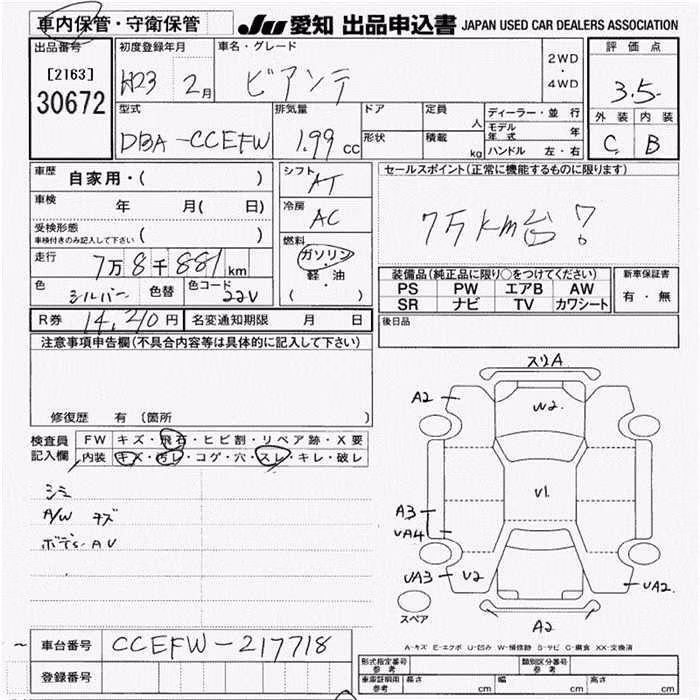 車内保管・守衛保管 JU 愛知 出品申込書 JAPAN USED CAR DEALERS ASSOCIATION
出品番号 初度登録年月 車名・グレード 2WD・4WD 評価点
[2163] H23 2月 ビアンテ 3.5
30672
型式 排気量 ドア 定員 人 ディーラー・並行 外装 内装
DBA-CCEFW 1.99 cc 形状 積載 kg モデル年式 年 C B
ハンドル 左・右
車歴 自家用・( ) シフト AT セールスポイント(正常に機能するものに限ります)
車検 年 月( 日) 冷房 AC 7万km台!
受検形態 車検付きのみ記入して下さい ( ) 燃料 ガソリン・軽油 ( )
走行 7万8千881km 装備品(純正品に限り○をつけてください) 新車保証書
色 シルバー 色替 色コード 22V PS PW エアB AW 有・無
SR ナビ TV カワシート
R券 14,210円 名変通知期限 月 日 後日品
注意事項申告欄(不具合内容等は具体的に記入して下さい)
修復歴 有(箇所 )
検査員記入欄 FW キズ・飛石・ヒビ割・リペア跡・X要
内装 キズ・汚レ・コゲ・穴・スレ・キレ・破レ
シミ
A/W キズ
ボデs- AU
スリA
A2
W2.
V1.
A3
UA4
UA3
U2
UA2.
A2
スペア
A-キズ E-エクボ U-凹み W-補修跡 S-サビ C-腐食 XX-交換済
車台番号 CCEFW-217718
登録番号
型式指定番号 参考 類別区分番号 参考
車庫証明用 参考 長さ cm 幅 cm 高さ cm